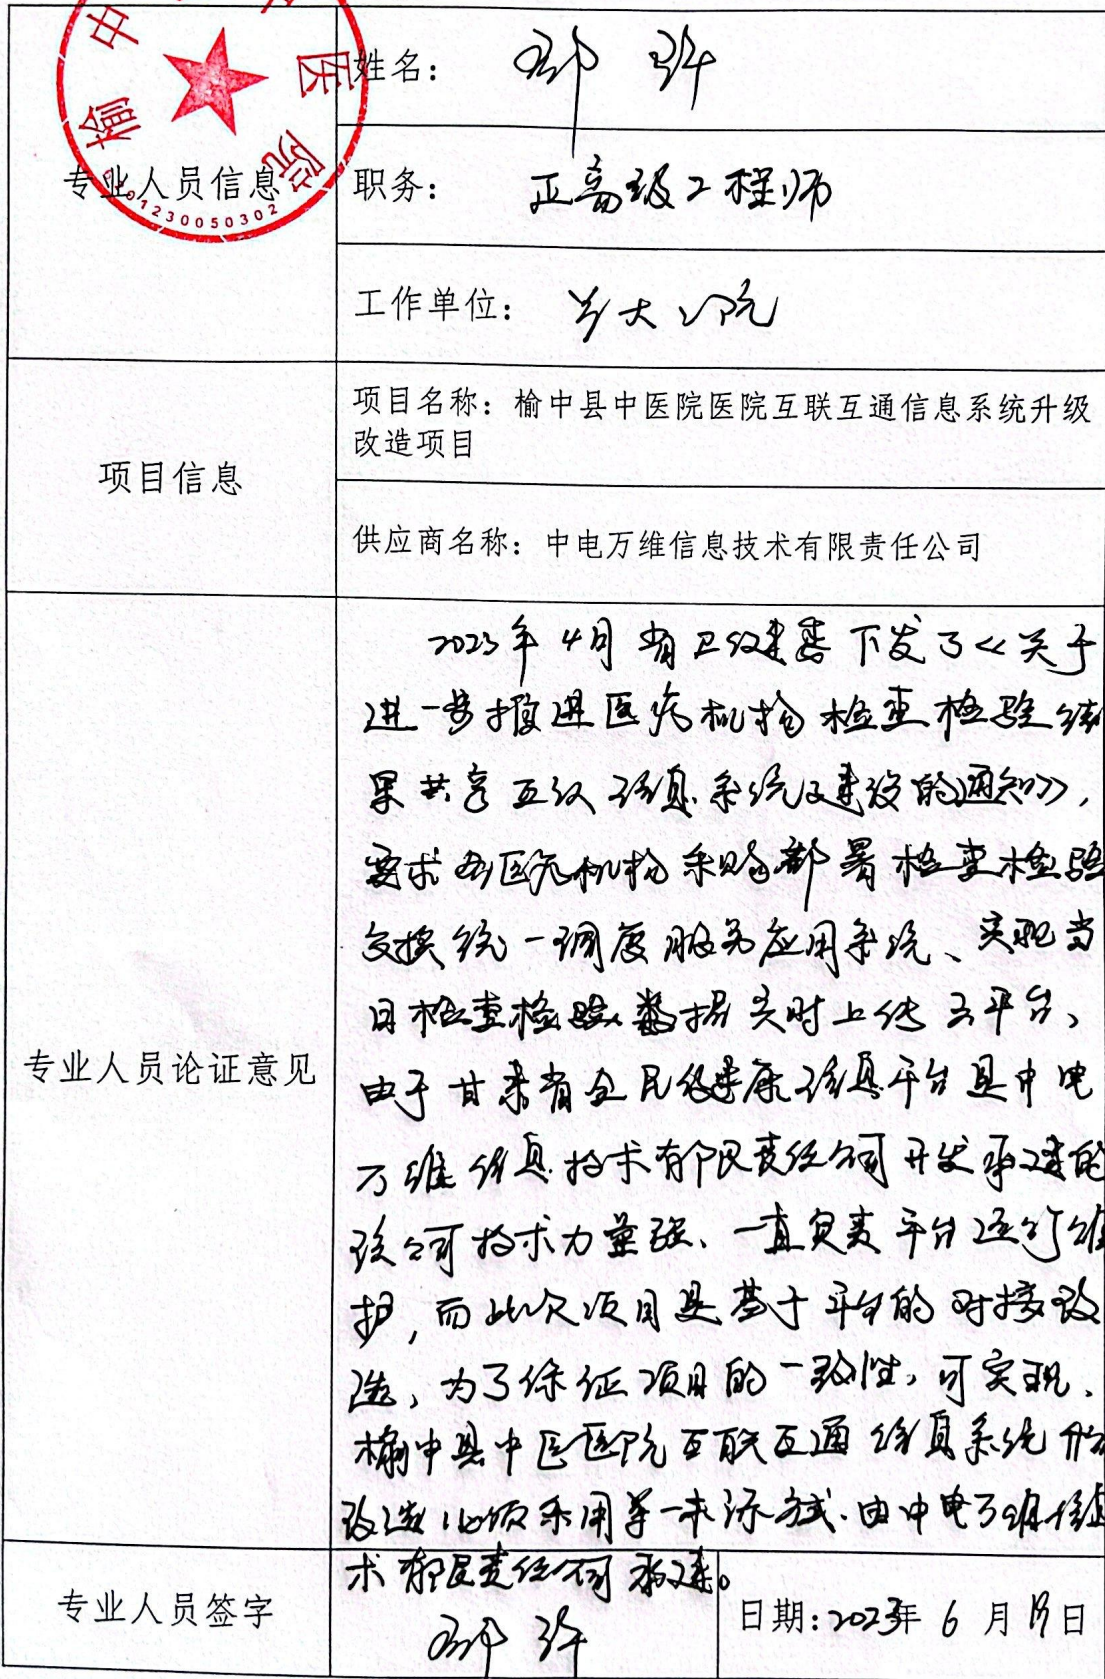 中 医
榆 院
6201230050302
专业人员信息
姓名：
职务： 正高级工程师
工作单位： 兰大二院
项目信息
项目名称：榆中县中医院医院互联互通信息系统升级
改造项目
供应商名称：中电万维信息技术有限责任公司
专业人员论证意见
2023年4月省卫健委下发了《关于
进一步推进医疗机构检查检验结
果共享互认信息系统建设的通知》，
要求各医疗机构采购部署检查检验
交换统一调度服务应用系统、实现当
日检查检验数据实时上传云平台、
由于甘肃省全民健康信息平台是中电
万维信息技术有限责任公司开发承建的
该公司技术力量强、一直负责平台运行维
护，而此次项目是基于平台的对接改
造，为了保证项目的一致性，可实现、
榆中县中医医院互联互通信息系统升级
改造必须采用单一来源方式.由中电万维信息
术有限责任公司承建。
专业人员签字
日期：2023年 6 月 日